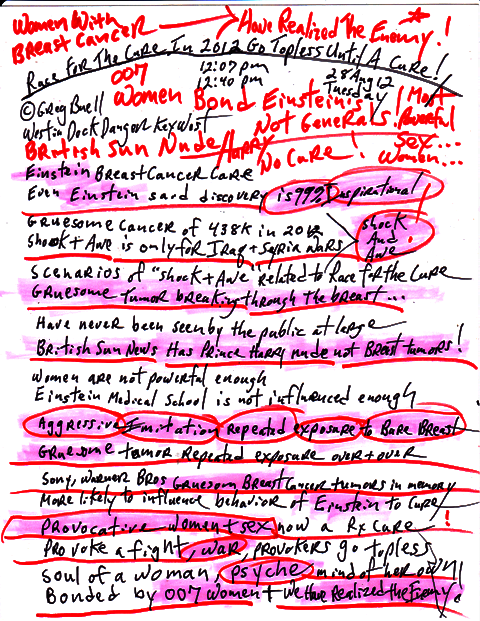 Women With
Breast Cancer
Have Realized The Enemy!
Race For The Cure In 2012 Go Topless Until A Cure!
12:07 pm
12:40 pm
28 Aug 12
Tuesday
007
Women Bond Einstein's
Not Generals!
Most
Powerful
Sex...
Women...
© Greg Buell
Westin Dock Danger Key West
British Sun Nude Harry
No Cure!
Einstein Breast Cancer Cure
Even Einstein said discovery is 99% Inspirational
Gruesome Cancer of 438K in 2012
Shock + Awe is only for Iraq + Syria wars
Shock
And
Awe
!
Scenarios of "Shock + Awe" related to Race for the Cure
Gruesome tumor breaking through the breast...
Have never been seen by the public at large
British Sun News Has Prince Harry nude not Breast tumors!
Women are not powerful enough
Einstein Medical School is not influenced enough
Aggressive Imitation Repeated exposure to Bare Breast
Gruesome tumor Repeated exposure over + over
Sony, Warner Bros Gruesom Breast Cancer tumors in memory
More likely to influence behavior of Einstein to Cure
Provocative women + sex now a Rx Cure!
Provoke a fight, war, provokers go topless
soul of a woman, psyche mind of her own!
Bonded by 007 Women + We Have Realized the Enemy!